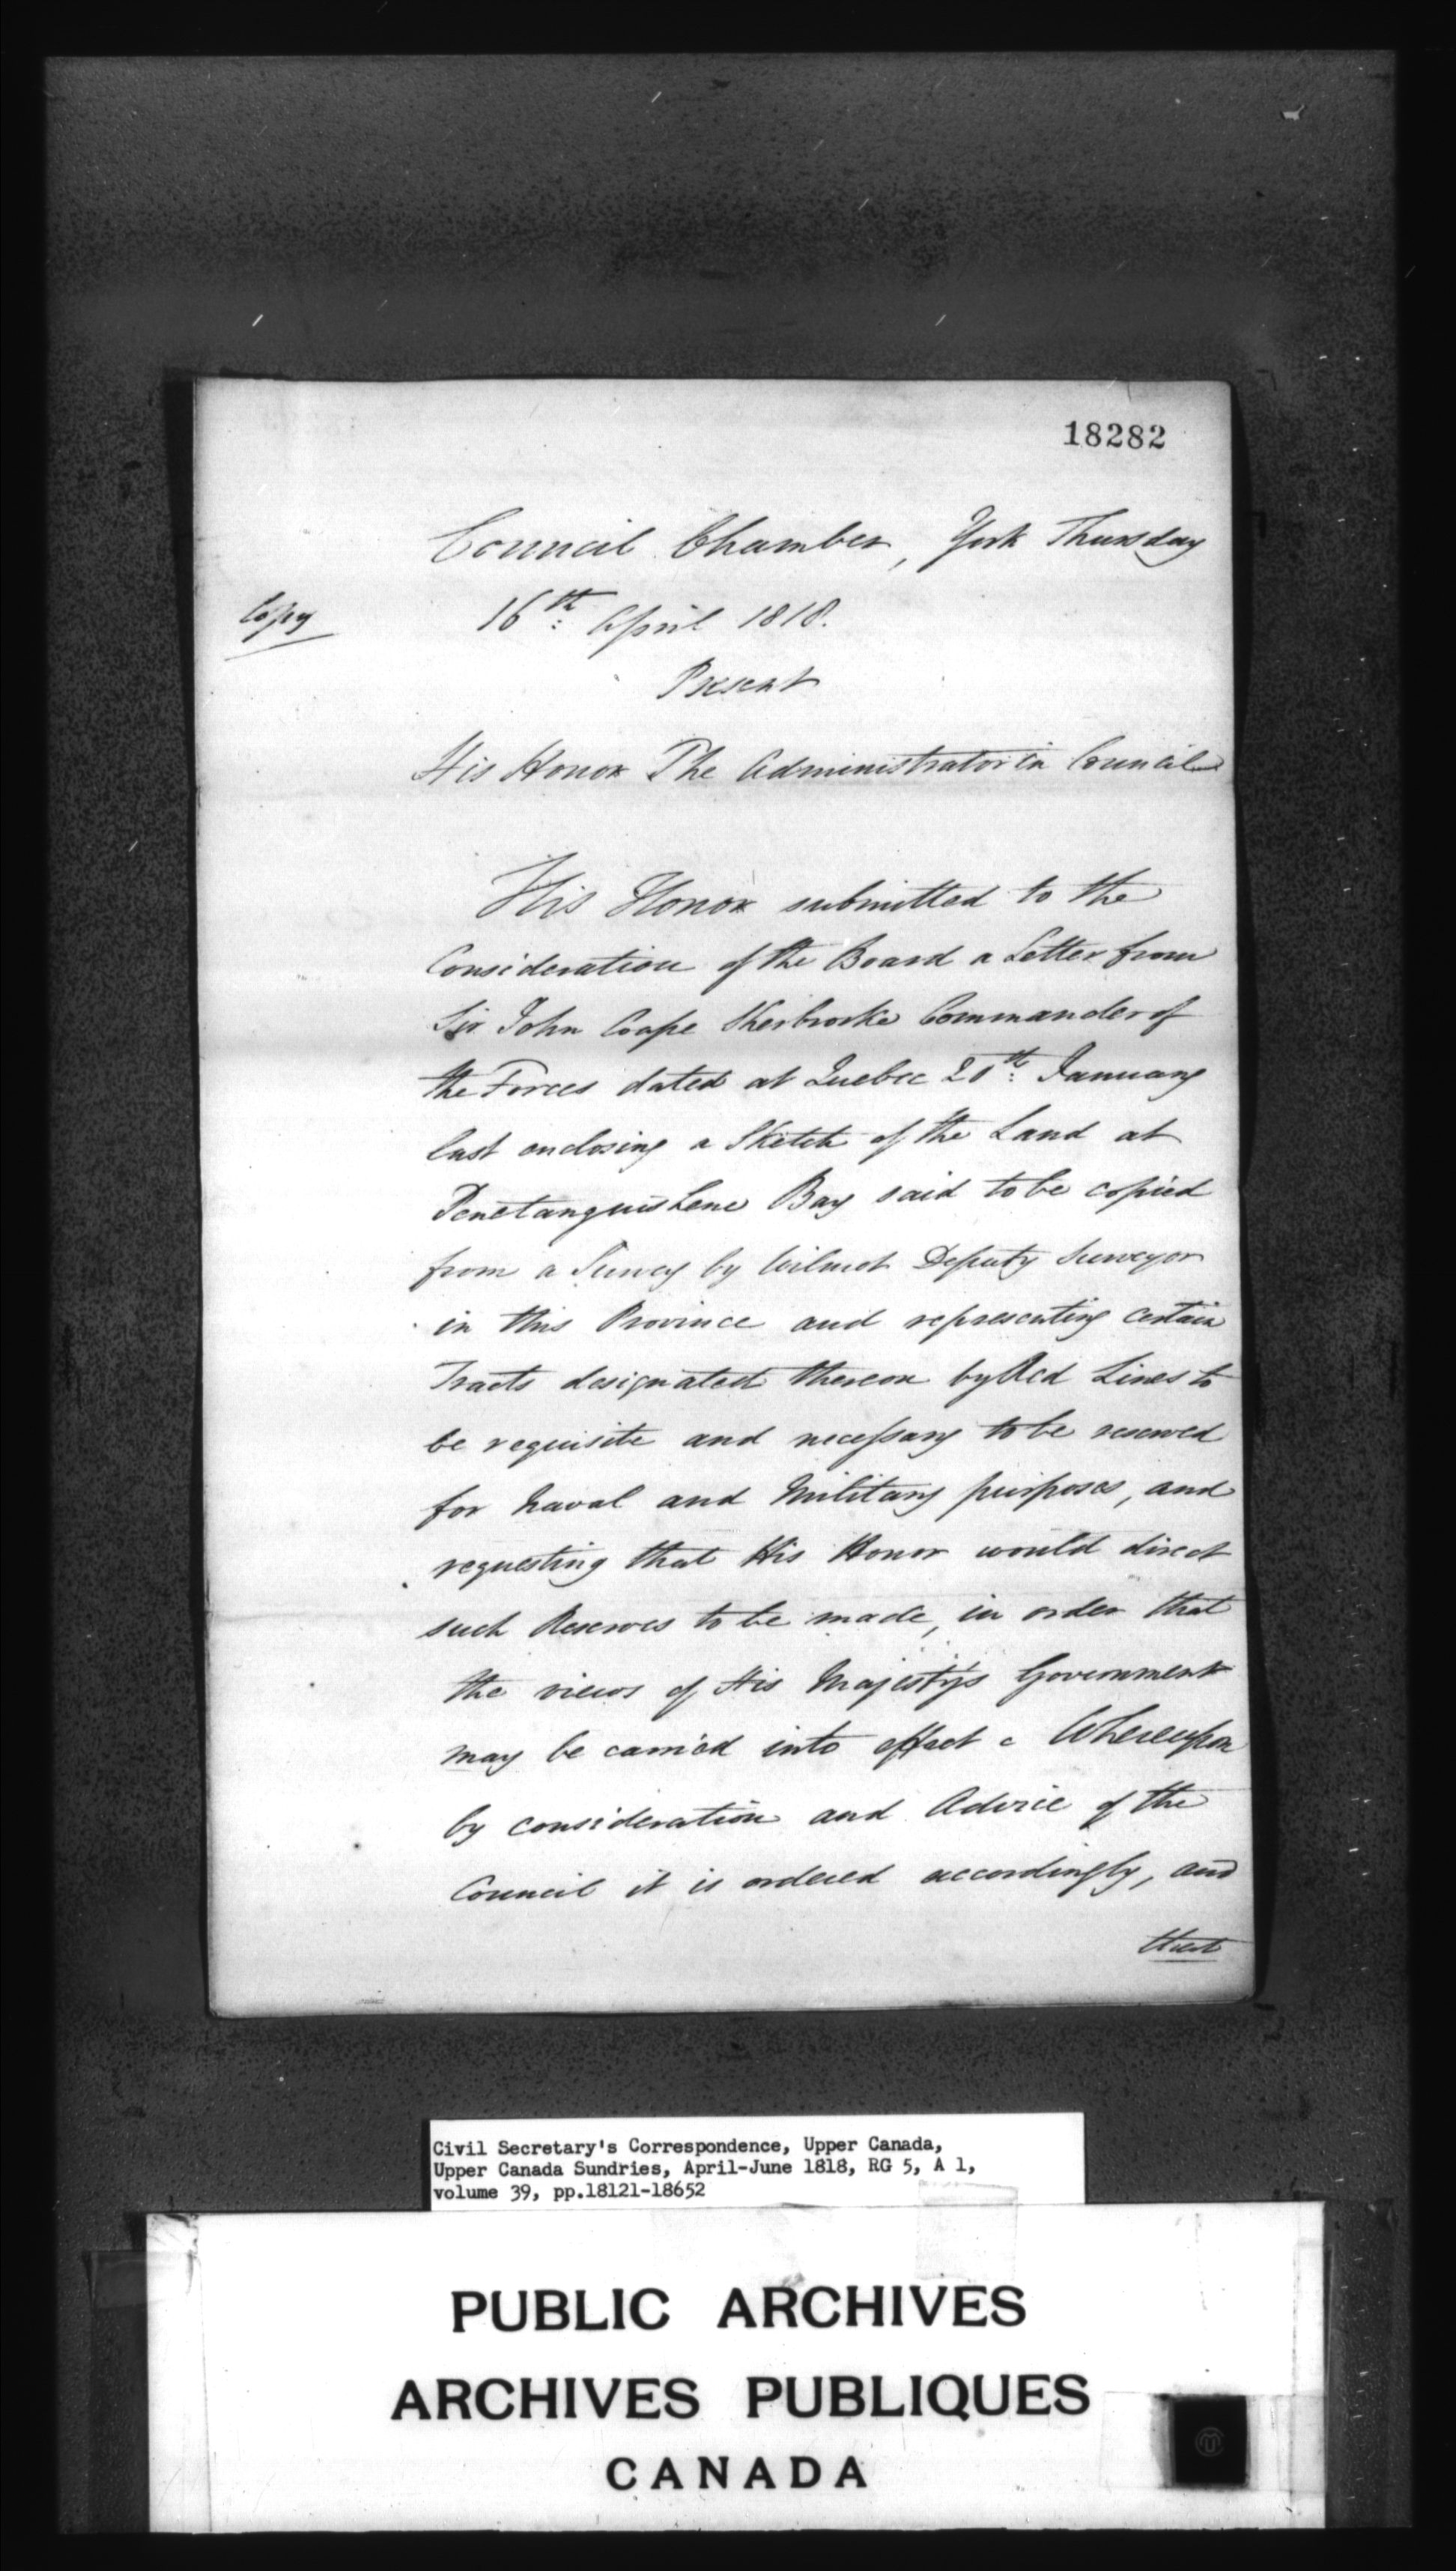 18282
Council Chamber, York Thursday
Copy
16th: April 1818.
Present
His Honor The Administrator in Council
His Honor submitted to the
Consideration of the Board a Letter from
Sir John Coape Sherbrooke Commander of
the Forces dated at Quebec 20th: January
last enclosing a Sketch of the Land at
Penetanguishene Bay said to be copied
from a Survey by Wilmot Deputy Surveyor
in this Province and representing certain
Tracts designated thereon by Red Lines to
be requisite and necessary to be reserved
for Naval and Military purposes, and
requesting that His Honor would direct
such Reserves to be made, in order that
the views of His Majesty's Government
may be carried into effect Whereupon
by consideration and Advice of the
Council it is ordered accordingly, and
that
Civil Secretary's Correspondence, Upper Canada,
Upper Canada Sundries, April-June 1818, RG 5, A 1,
volume 39, pp.18121-18652
PUBLIC ARCHIVES
ARCHIVES PUBLIQUES
CANADA